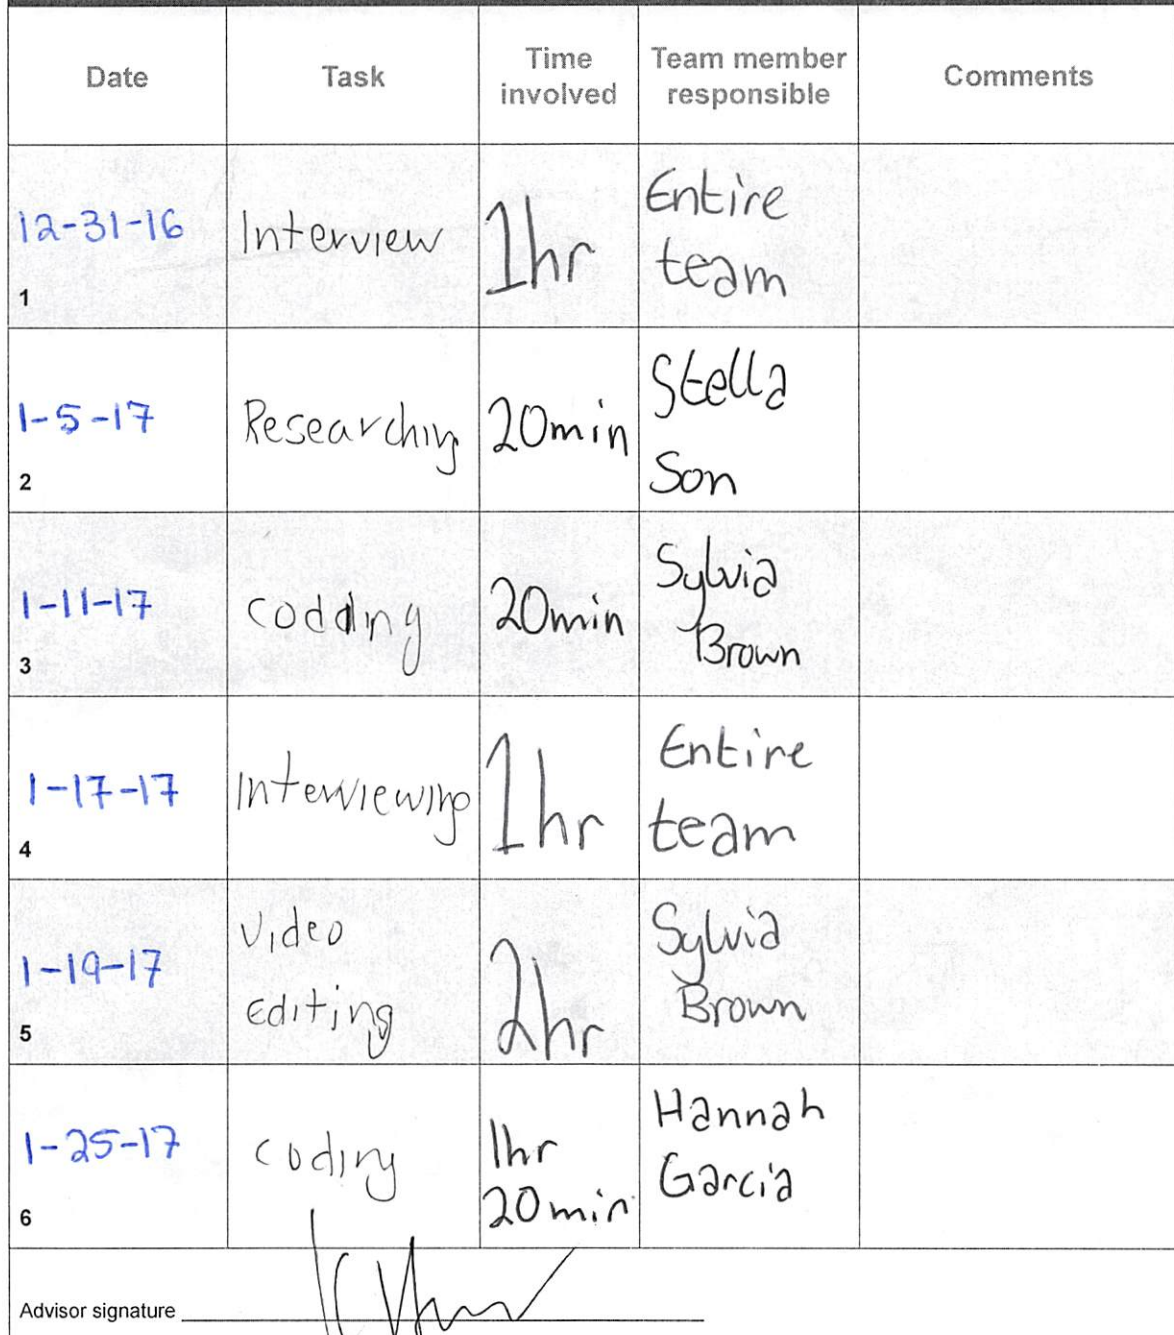 Date Task Time involved Team member responsible Comments
12-31-16 Interview 1hr Entire team
1
1-5-17 Researching 20min Stella Son
2
1-11-17 codding 20min Sylvia Brown
3
1-17-17 Interviewing 1hr Entire team
4
1-19-17 Video Editing 2hr Sylvia Brown
5
1-25-17 coding 1hr 20min Hannah Garcia
6
Advisor signature